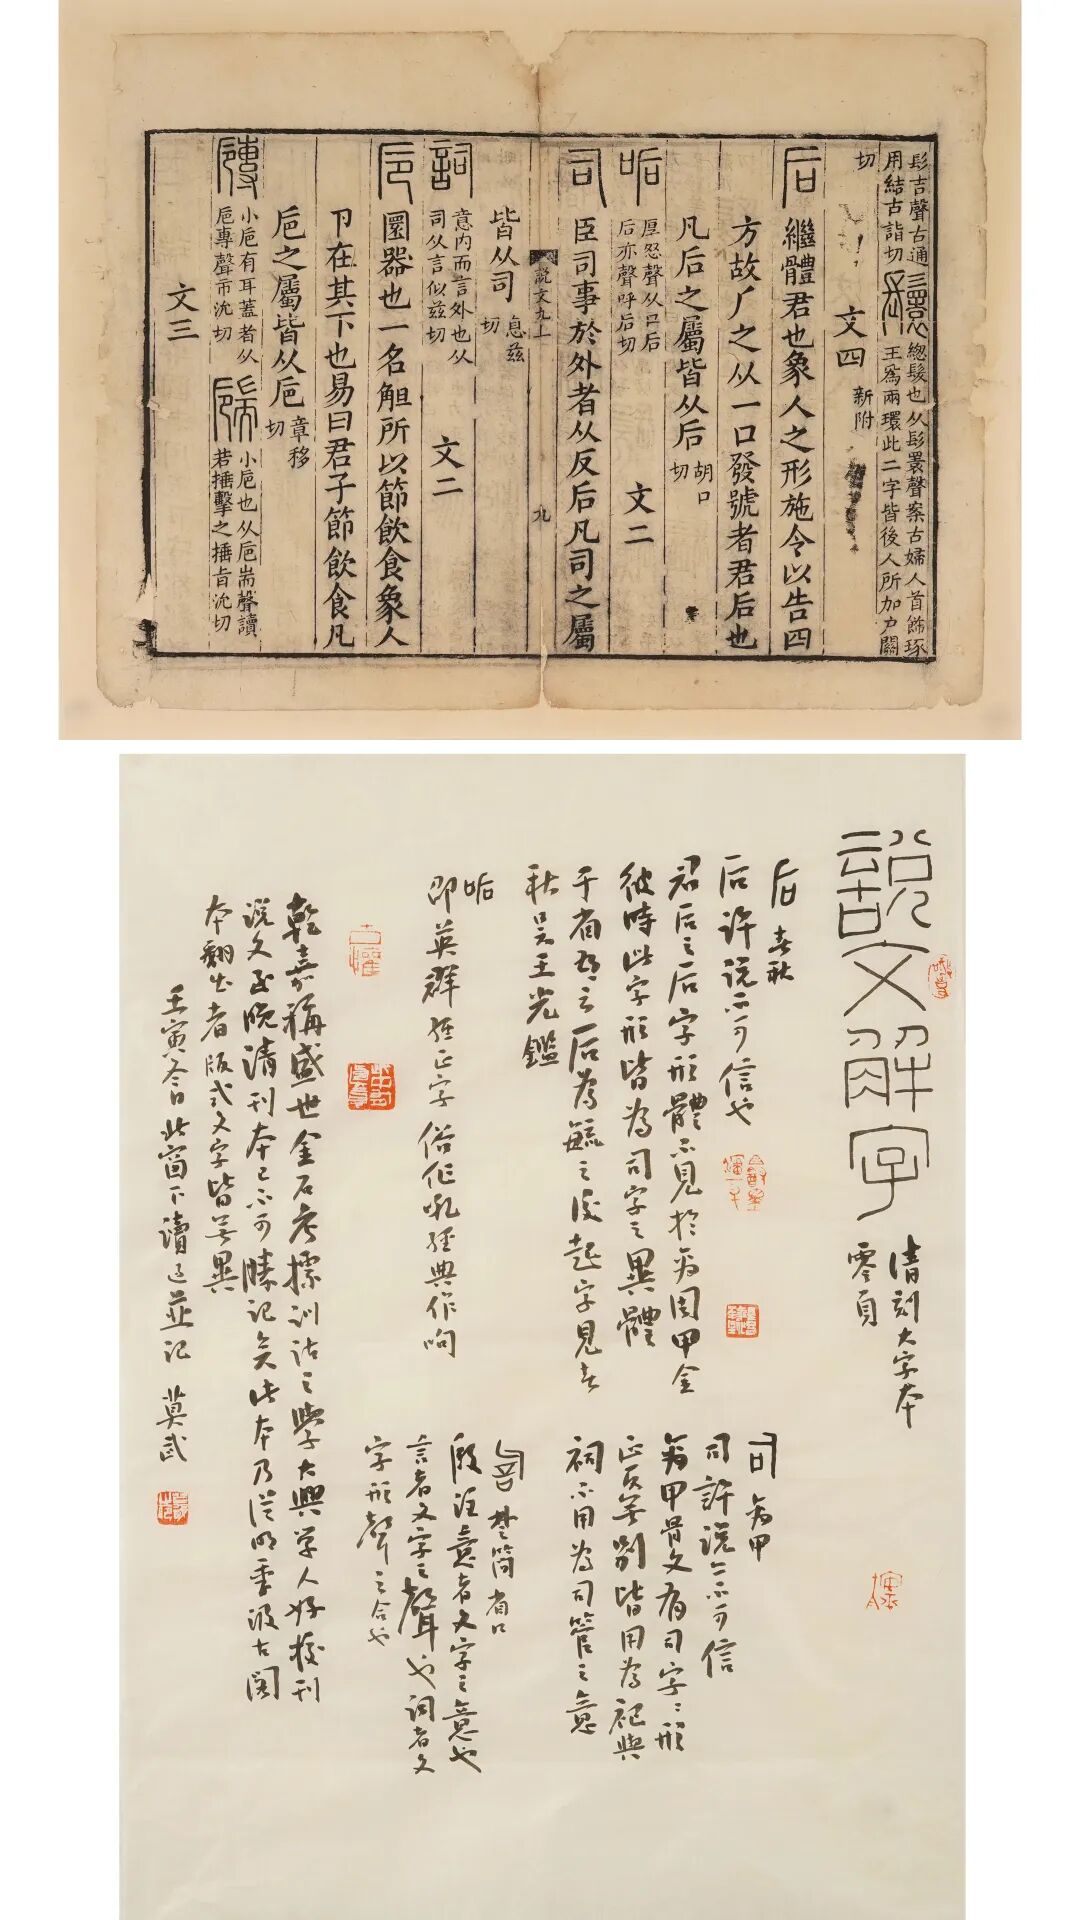 髟吉聲古通
用結古詣切
鬟
總髮也从髟睘聲案古婦人首飾琢
王爲兩環此二字皆後人所加户關
切
文四 新附
后 繼體君也象人之形施令以告四
方故厂之从一口發號者君后也
凡后之屬皆从后 胡口
切
㖃 厚怒聲从口后
后亦聲呼后切
文二
司 臣司事於外者从反后凡司之屬
說文九上
九
皆从司 息兹
切
詞 意内而言外也从
司从言似兹切
文二
卮 圜器也一名觛所以節飲食象人
卪在其下也易曰君子節飲食凡
卮之屬皆从卮 章移
切
小卮有耳蓋者从
卮專聲市沇切
小卮也从卮耑聲讀
若捶擊之捶旨沇切
文三
說文解字
清刻大字本
零頁
后 春秋
后 許說不可信也
君后之后字形體不見於商周甲金
彼時此字形皆為司字之異體
于省吾云后為毓之後起字見春
秋吴王光鑑
㖃
邵英群經正字俗作吼經典作呴
司 商甲
司 許說亦不可信
商甲骨文有司字字形
正反無別皆用為祀與
祠不用為司管之意
楚簡省口
段注意者文字之意也
言者文字之聲也詞者文
字形聲之合也
乾嘉稱盛世金石考據訓詁之學大興學人好校刊
說文至晚清刊本已不可勝記矣此本乃從明季汲古閣
本翻出者版式文字皆無異
壬寅冬日北窗下讀過並記 莫武